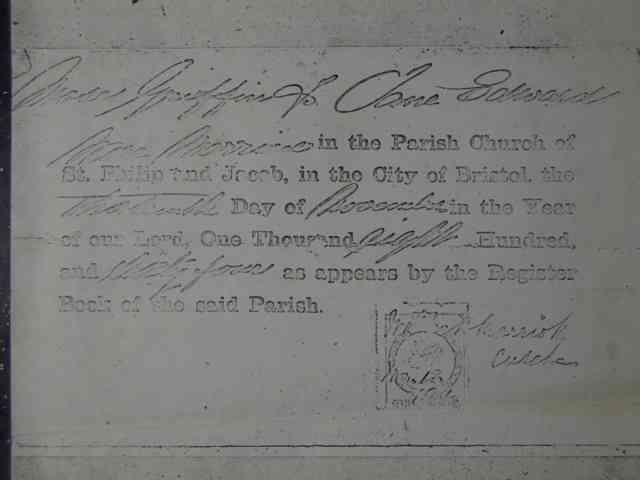 Griffin & Jane Edward
were Married in the Parish Church of
St. Philip and Jacob, in the City of Bristol, the
Day of November in the Year
of our Lord, One Thousand eight Hundred,
and sixty four as appears by the Register
Book of the said Parish.